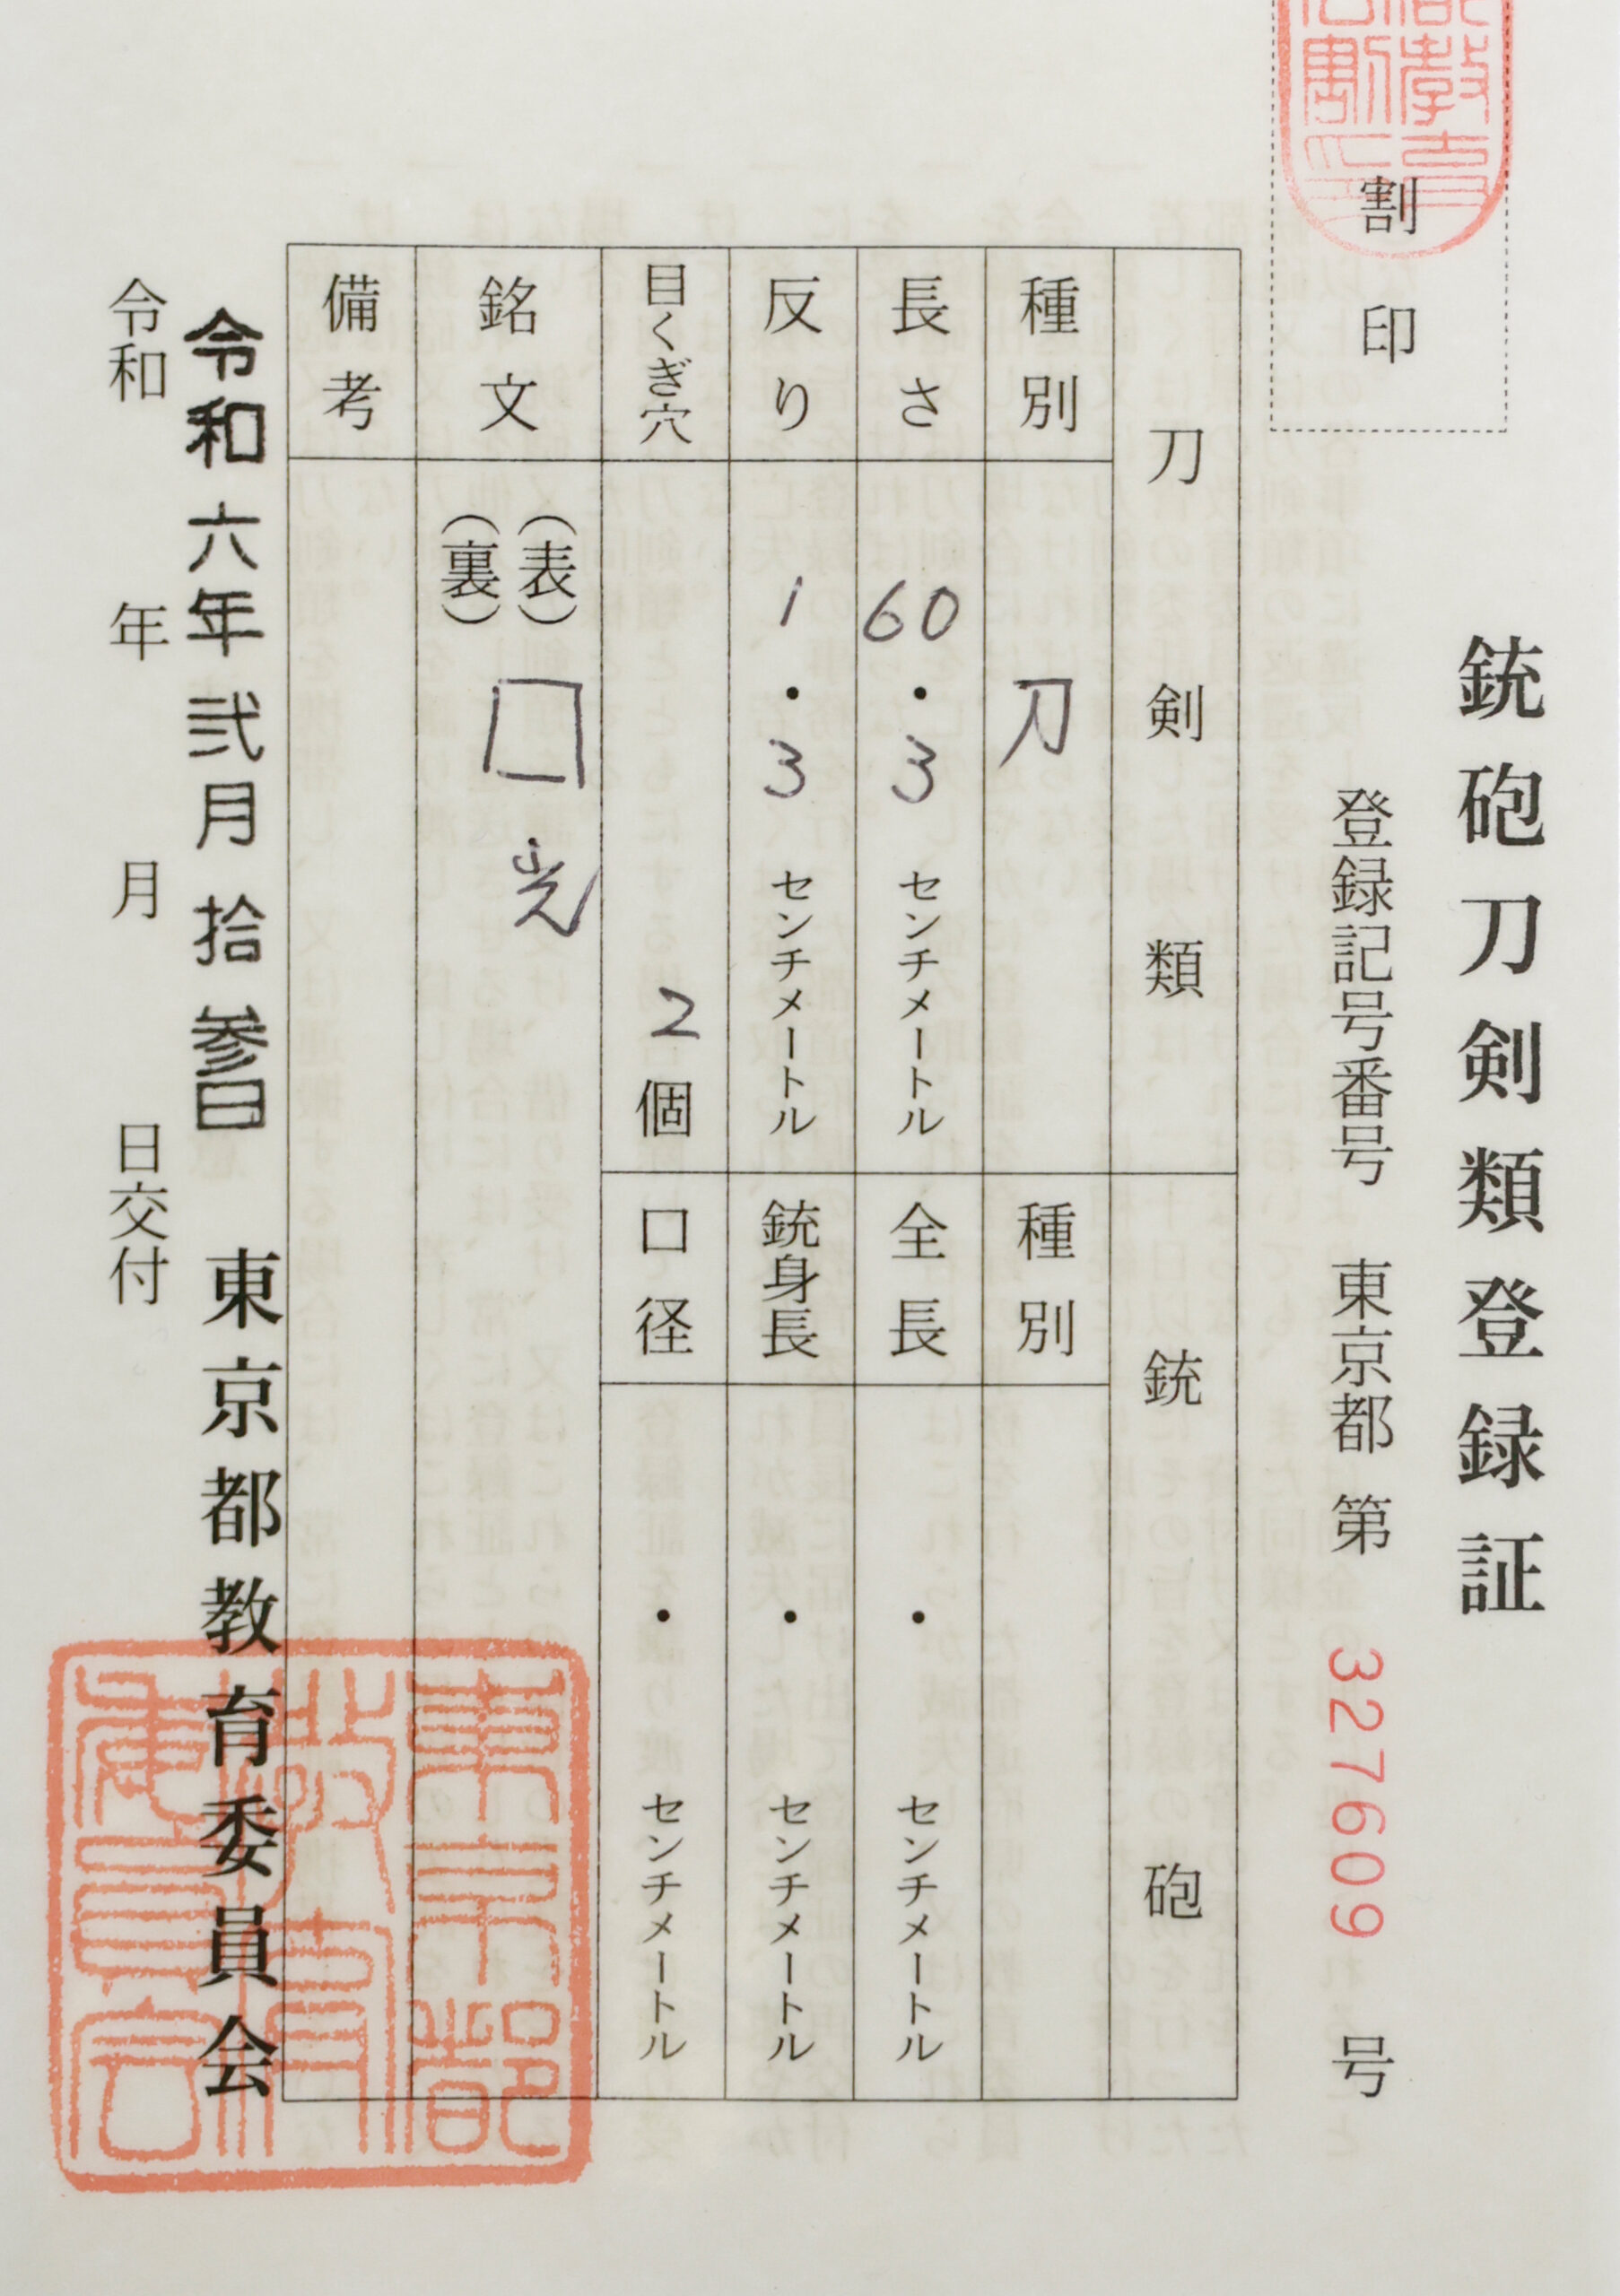 銃砲刀剣類登録証
割印
登録記号番号 東京都 第 327609 号
刀剣類
銃砲
種別 刀
種別
長さ 60・3 センチメートル
全長 ・ センチメートル
反り 1・3 センチメートル
銃身長 ・ センチメートル
目くぎ穴 2 個
口径 ・ センチメートル
銘文 (表) □光
(裏)
備考
令和六年弐月拾参日
東京都教育委員会
令和 年 月 日交付